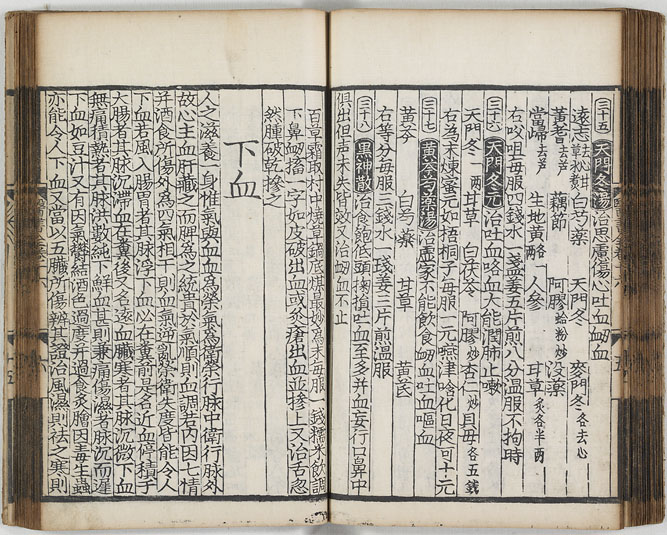 三十五 天門冬湯 治思慮傷心吐血衂血
遠志 白芍藥 天門冬 麥門冬 各去心
黃耆 去芦 藕節 阿膠 蛤粉炒 没藥
當歸 去芦 生地黃 各一兩 人參 甘草 炙各半兩
右㕮咀每服四錢水一盞姜五片煎八分温服不拘時
三十六 天門冬元 治吐血咯血大能潤肺止嗽
天門冬 一兩 甘草 白茯苓 阿膠 炒 杏仁 炒 貝母 各五錢
右為末煉蜜元如梧桐子每服一元嚥津噙化日夜可十元
三十七 黃芩芍藥湯 治虚家不能飲食衂血吐血嘔血
黃芩 白芍藥 甘草 黃芪
右等分每服三錢水一琖姜三片煎温服
三十八 黒神散 治食飽低頭掬損吐血至多并血妄行口鼻中
俱出但声未失皆效又治衂血不止
百草霜取村中燒草鍋底煤最妙為末每服一錢糯米飲調
下鼻衂搐一字如皮破出血或灸瘡出血並摻上又治舌忽
然腫破乾摻之
下血
人之滋養一身惟氣與血血為榮氣為衛榮行脉中衛行脉外
故心主血肝藏之而脾為之統貴於氣順則血調若内因七情
并酒食所傷外為四氣相干則血氣逆亂榮衛失度皆能令人
下血若風入腸胃者其脉浮下血必在糞前是名近血停積于
大腸者其脉沉滯血在糞後又名遠血臓寒者其脉沉微下血
無痛積熱者其脉洪數純下鮮血甚則兼痛傷濕者脉沉而遲
下血如豆汁又有因氣欝結酒色過度并過食炙膾因毒生蟲
亦能令人下血又當以五臟所傷辨其證治風濕則祛之寒則